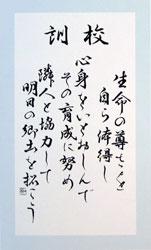 校訓
生命の尊さを
自ら体得し
心身をいとおしんで
その育成に努め
隣人と協力して
明日の郷土を拓こう